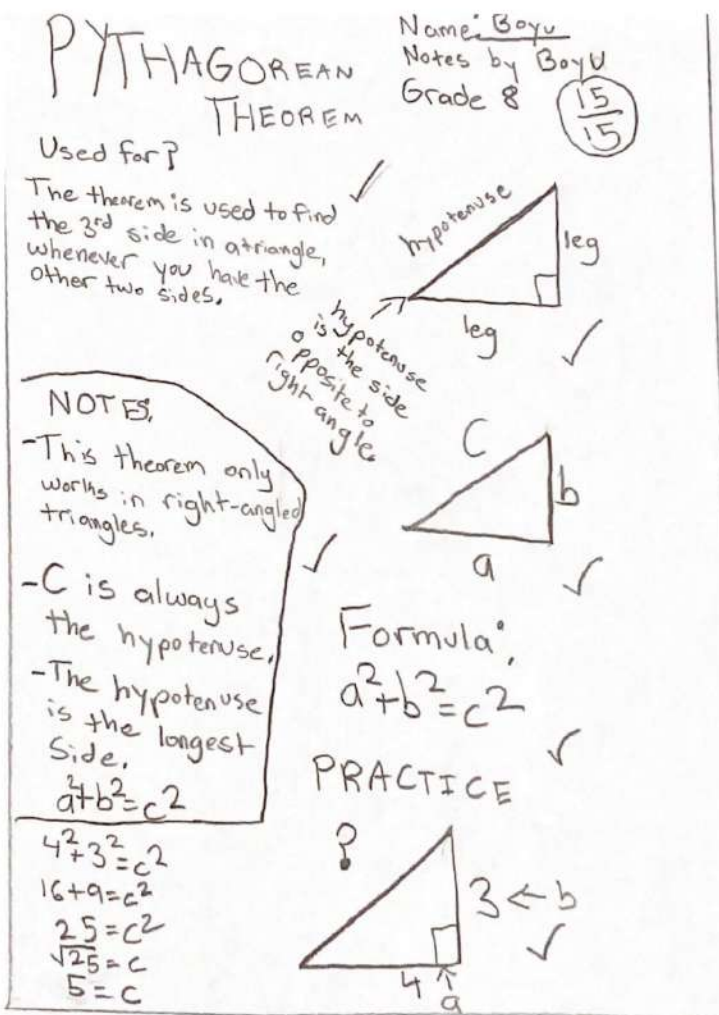 PYTHAGOREAN
THEOREM
Name: Boyu
Notes by Boyu
Grade 8
15
15
Used for?
The theorem is used to find
the 3rd side in a triangle,
whenever you have the
other two sides.
hypotenuse
leg
leg
hypotenuse
is the side
opposite to
right angle.
NOTES:
-This theorem only
works in right-angled
triangles.
-C is always
the hypotenuse.
-The hypotenuse
is the longest
side.
a²+b²=c²
4²+3²=c²
16+9=c²
25=c²
√25=c
5=c
C
b
a
Formula:
a²+b²=c²
PRACTICE
?
3 ← b
4 ↑
a